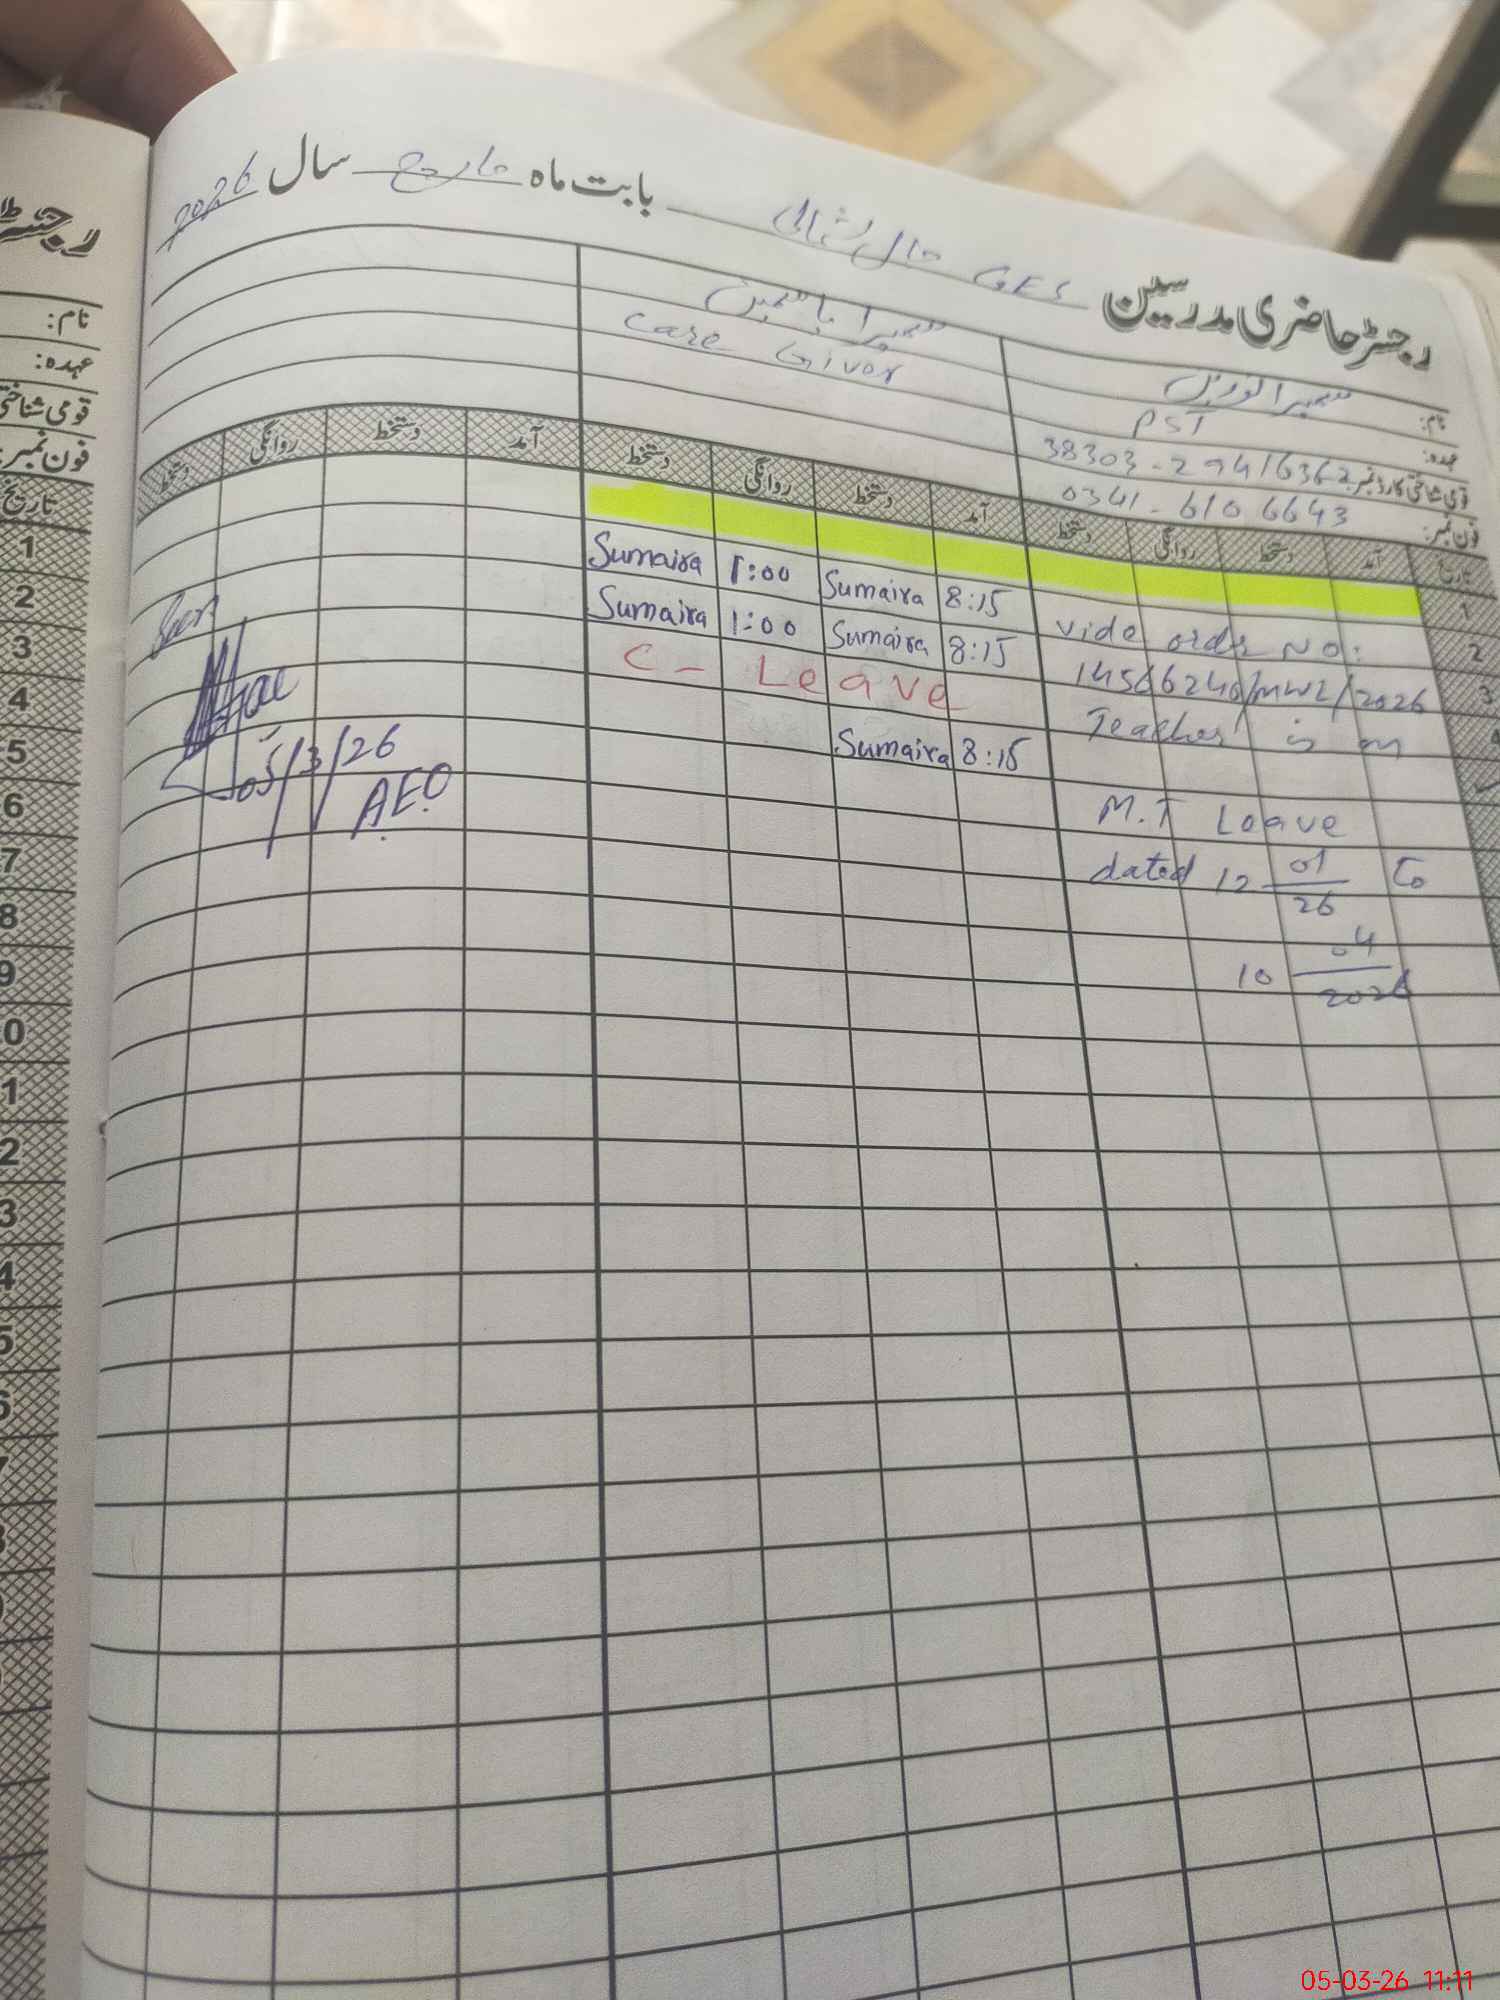 رجسٹر حاضری مدرسین GES بابت ماہ مارچ سال 2026
نام:
سمیرا یاسمین
عہدہ: PST
Care Giver
قومی شناختی کارڈ نمبر: 38303-29416362
فون نمبر: 0341-6106643
تاریخ آمد دستخط روانگی دستخط آمد دستخط روانگی دستخط آمد دستخط روانگی دستخط
1
2 8:15 Sumaira 1:00 Sumaira
3 8:15 Sumaira 1:00 Sumaira
4 C - Leave
8:15 Sumaira
Vide order No:
14566240/MWL/2026
Teacher is on
M.T Leave
dated 12 01/26 To
10 04/2026
Seen
05/3/26
A.E.O
رجسٹر
نام:
عہدہ:
قومی شناختی
فون نمبر:
تاریخ
1
2
3
4
5
6
7
8
9
0
1
2
3
4
5
6
7
05-03-26 11:11